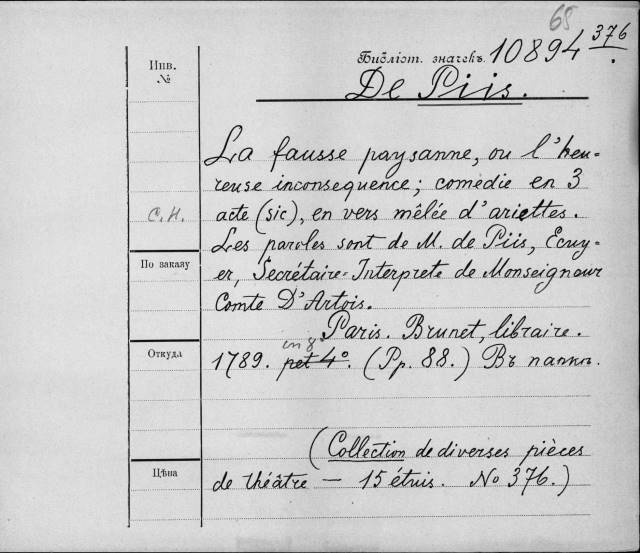 68
Инв.
№
Библіот. значекъ. 10894 376
De Piis.
La fausse paysanne, ou l'heu=
reuse inconsequence; comédie en 3
С. Н.
acte (sic), en vers mêlée d'ariettes.
Les paroles sont de M. de Piis, Ecuy-
По заказу
er, Secrétaire-Interprete de Monseigneur
Comte D'Artois.
Paris. Brunet, libraire.
Откуда
in 8
1789. pet 4º. (Pp. 88.) Въ папкѣ.
(Collection de diverses pièces
Цѣна
de théâtre — 15 étuis. No 376.)